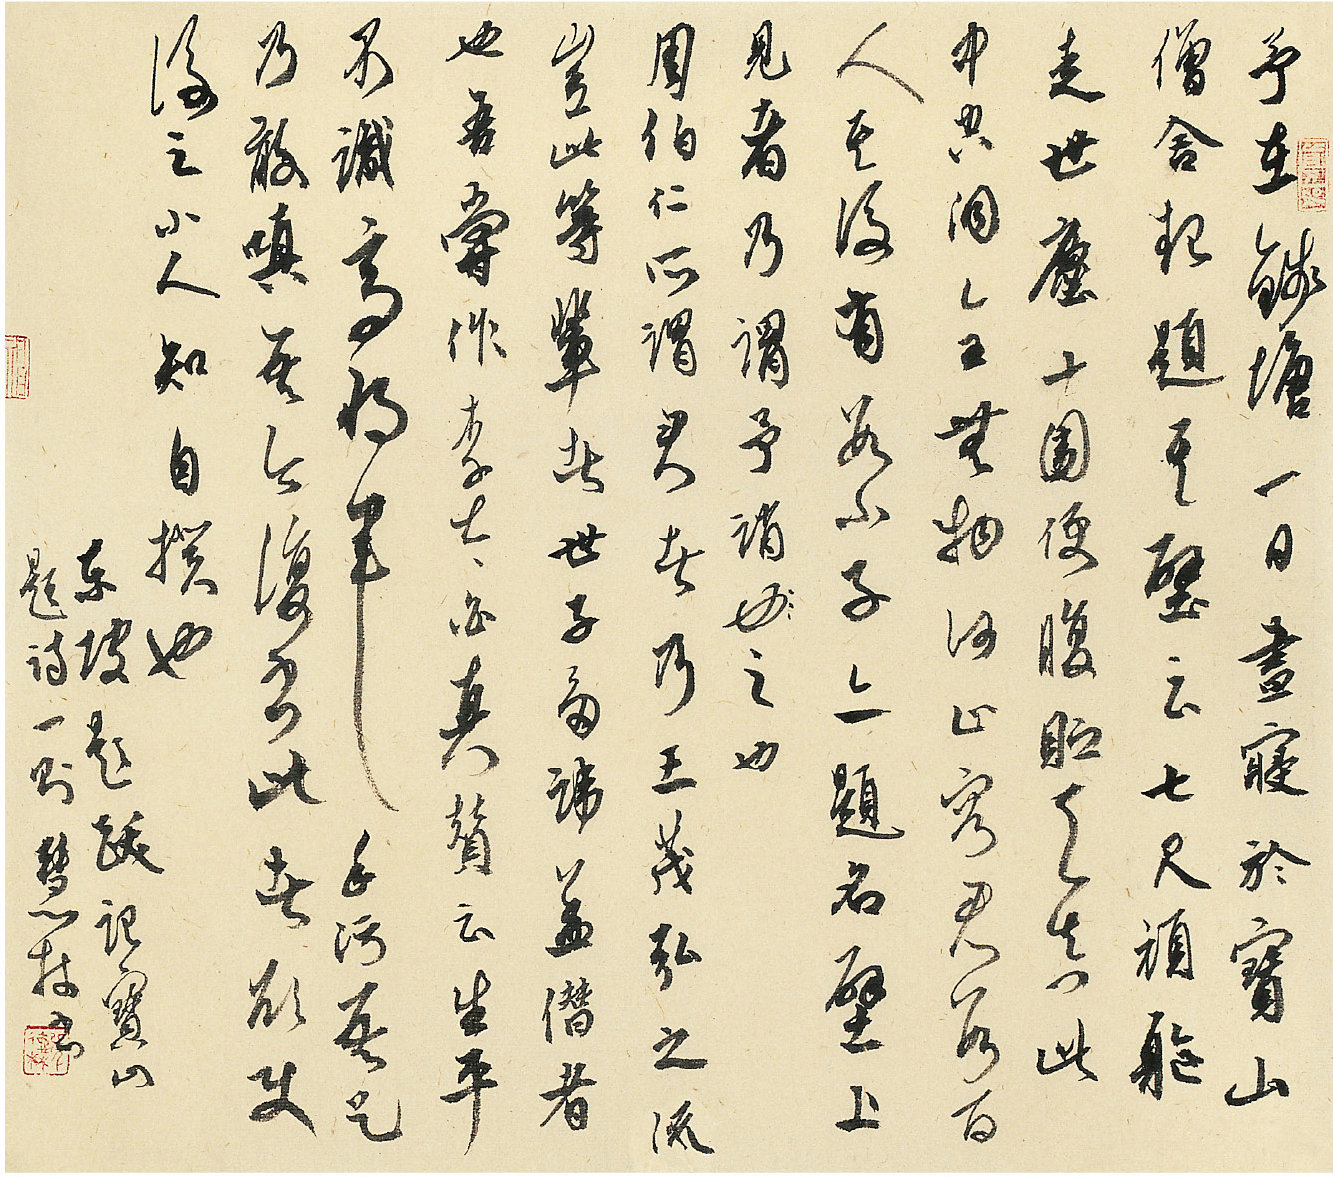 予在錢塘一日晝寢於寶山
僧舍起題其壁云七尺頑軀
走世塵十圍便腹貯天真此
中空洞全無物何止容君數百
人其後有數小子亦題名壁上
見者乃謂予誚也之也
周伯仁所謂君者乃王茂弘之流
豈此等輩者世子多諱蓋僭者
也吾嘗作李太白真贊云生平
不識高將軍手污吾足
乃敢嗔吾今復書此者欲使
後之小人知自揆也
东坡題跋記寶山
題詩一則